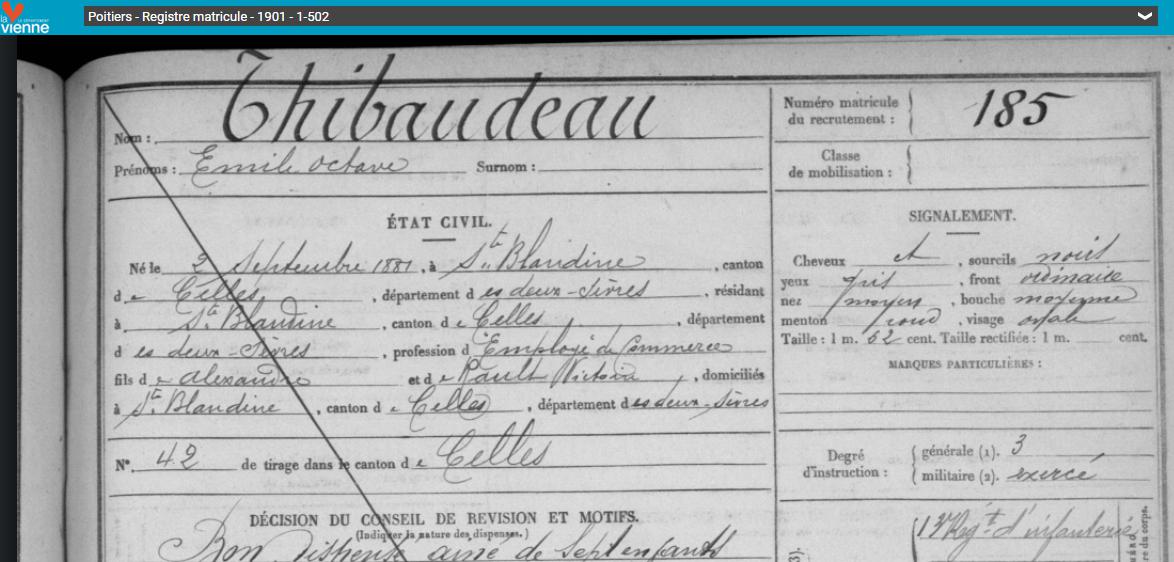 la vienne
LE DÉPARTEMENT
Poitiers - Registre matricule - 1901 - 1-502
Nom : Thibaudeau
Prénoms : Emile Octave Surnom :
Numéro matricule du recrutement : 185
Classe de mobilisation :
ÉTAT CIVIL.
Né le 2 Septembre 1881, à Ste Blandine, canton
de Celles, département des deux-Sèvres, résidant
à Ste Blandine, canton de Celles, département
des deux-Sèvres, profession d'Employé de Commerce
fils de Alexandre et de Pault Victoria, domiciliés
à Ste Blandine, canton de Celles, département des deux-Sèvres
N° 42 de tirage dans le canton de Celles
DÉCISION DU CONSEIL DE REVISION ET MOTIFS.
(Indiquer la nature des dispenses.)
Bon dispensé ainé de sept enfants
SIGNALEMENT.
Cheveux et, sourcils noirs
yeux gris, front ordinaire
nez moyen, bouche moyenne
menton rond, visage ovale
Taille : 1 m. 62 cent. Taille rectifiée : 1 m. cent.
MARQUES PARTICULIÈRES :
Degré d'instruction : générale (1). 3
militaire (2). exercé
Régt d'infanterie